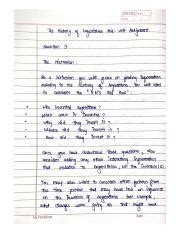 The History of Logarithms Pre-Unit Assignment
Question 3
The Historian:
As a historian you will focus on finding information
relating to the history of logarithms. You need to
focus on the "5 W's and How"
Who Invented Logarithms?
When were they Invented?
Why did they Invent it?
Where did they Invent it?
How did they Invent it?
Once you have answered these questions, you
consider adding any other interesting information
that relates to Logarithms, or the Inventor(s).
You may also want to consider other factors from
the time period that may have had an influence on
the Invention of Logarithms. For example,
what changes were going on that may have